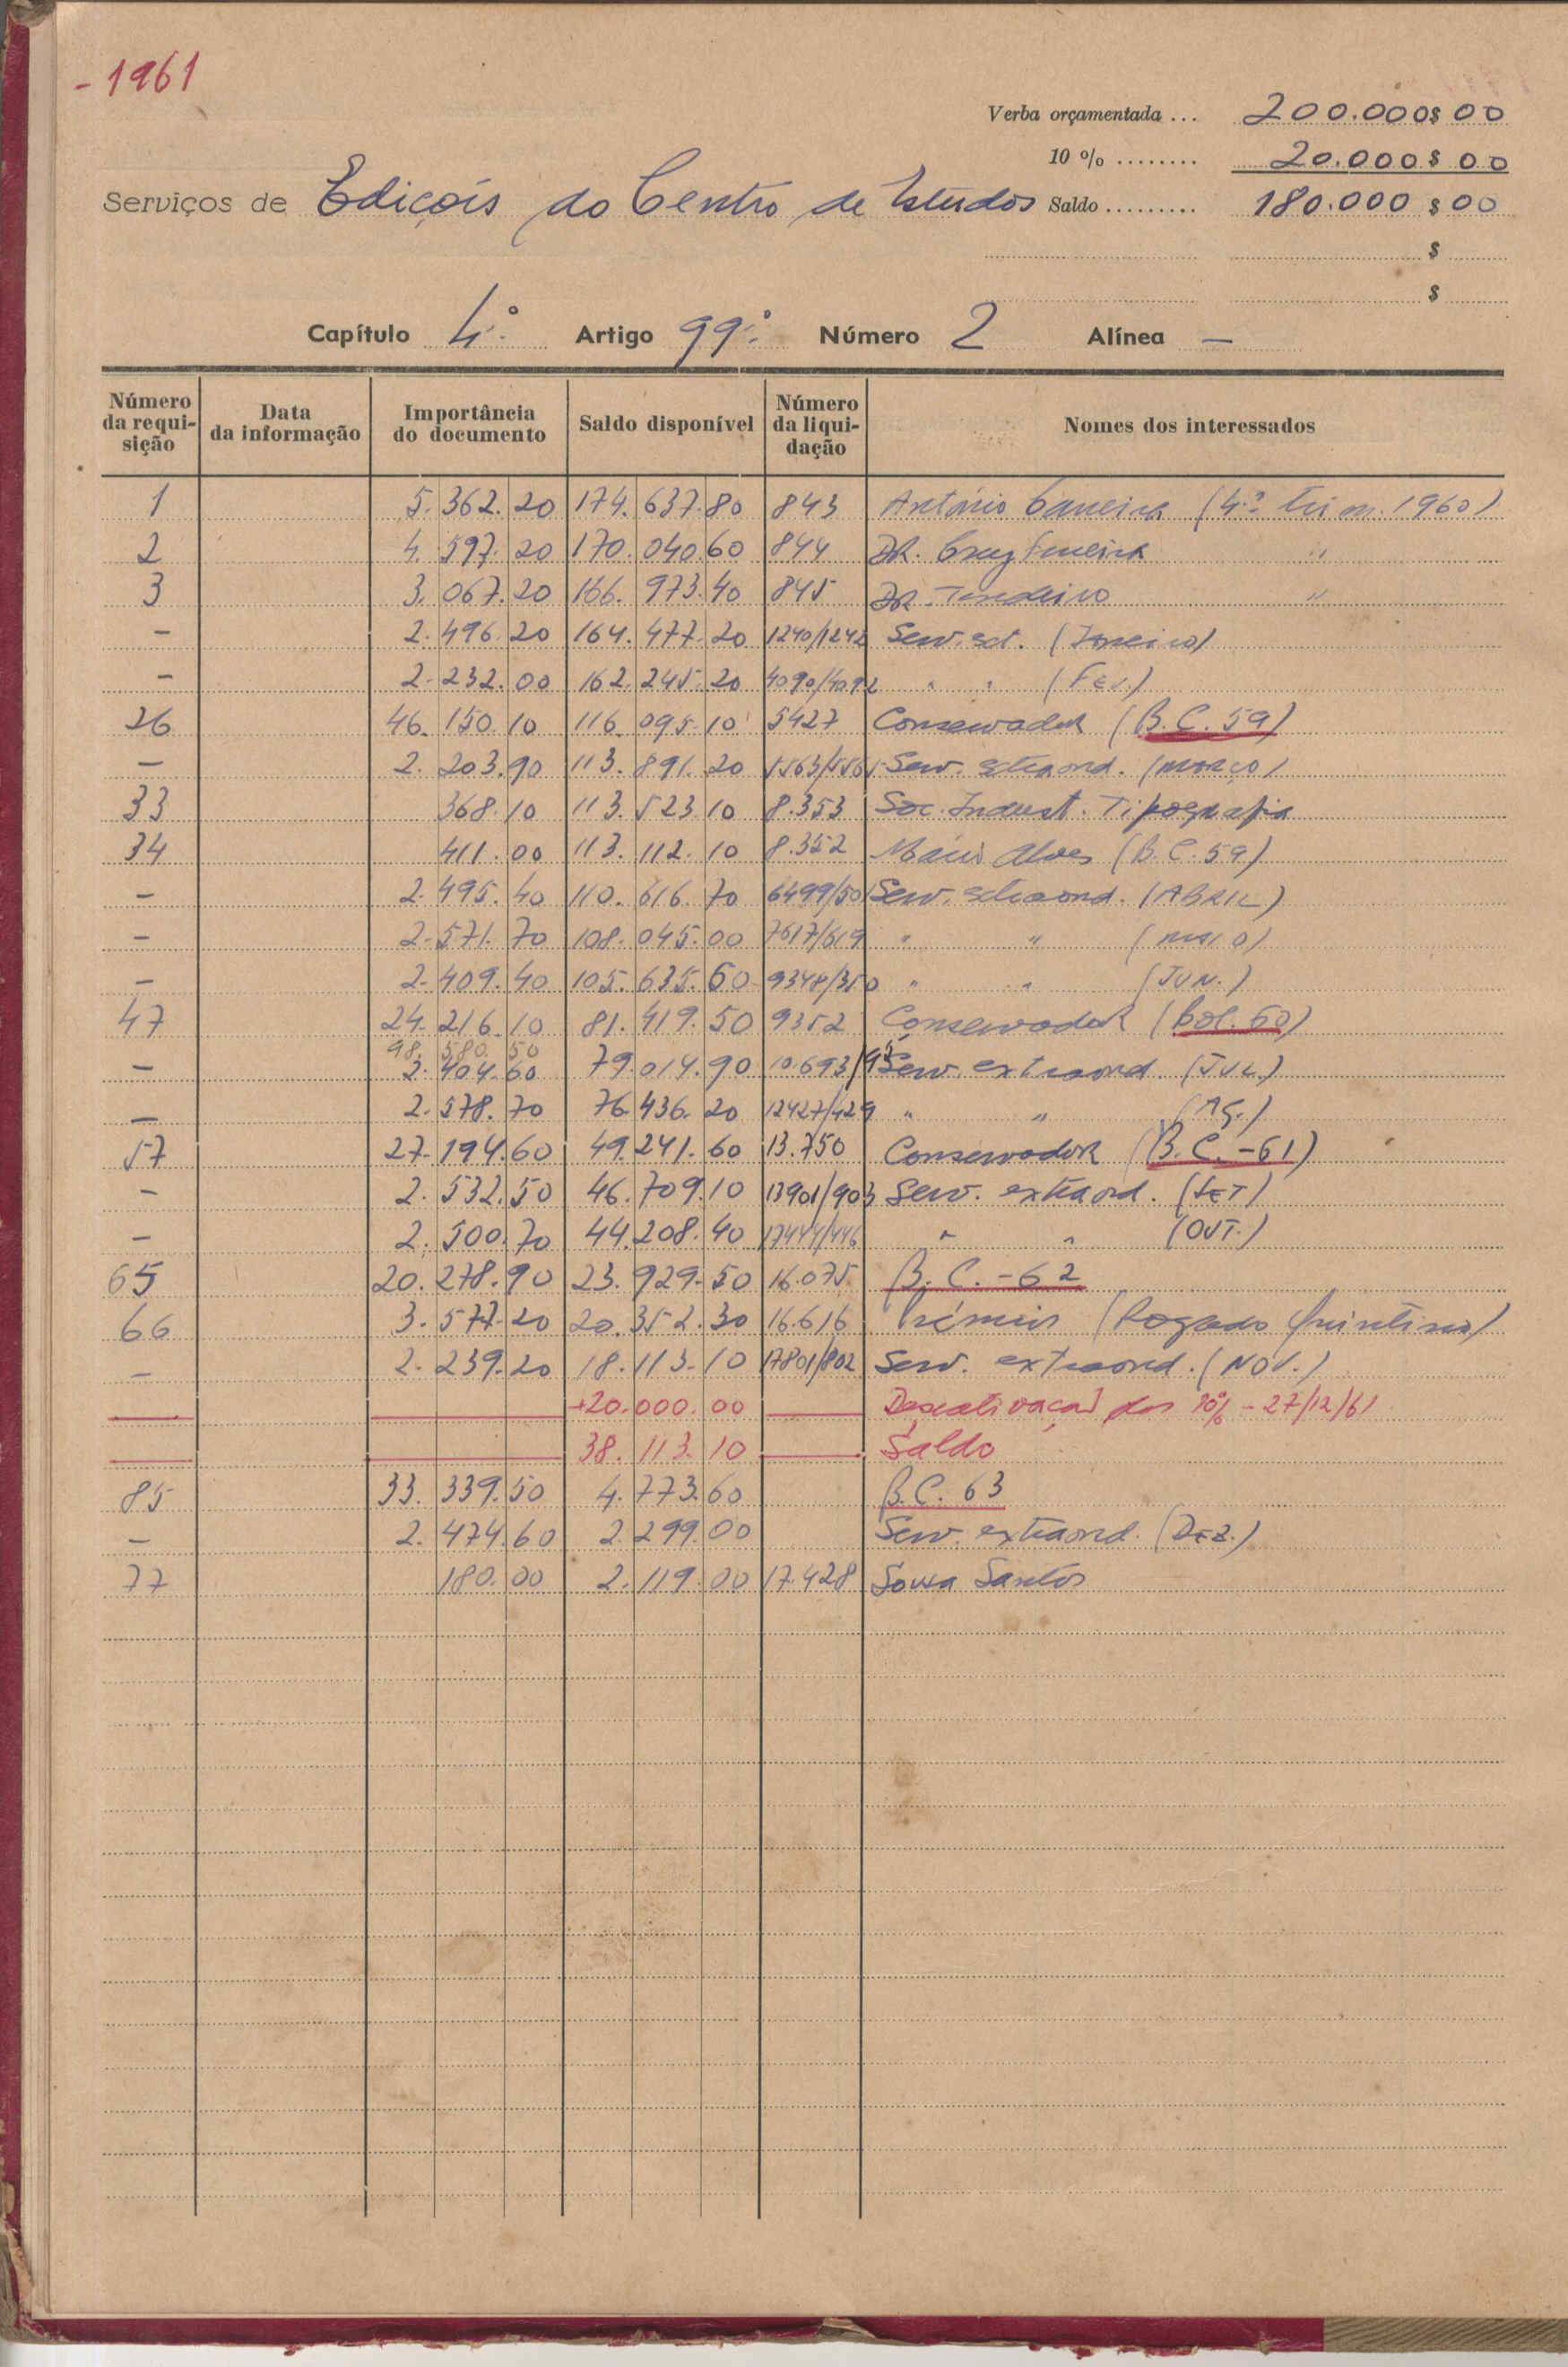 - 1961
Verba orçamentada ... 200.000$00
10 % ........ 20.000$00
Serviços de Edições do Centro de Estudos Saldo ......... 180.000$00
$
$
Capítulo 4.º Artigo 99.º Número 2 Alínea —
Número da requisição Data da informação Importância do documento Saldo disponível Número da liquidação Nomes dos interessados
1 5.362.20 174.637.80 843 António Carreira (4.º trim. 1960)
2 4.597.20 170.040.60 844 DR. "
3 3.067.20 166.973.40 845 DR. Tendeiro "
— 2.496.20 164.477.20 1240/1242 Serv. ext. (Janeiro)
— 2.232.00 162.245.20 4090/4092 " " (Fev.)
26 46.150.10 116.095.10 5427 Conservador (B.C. 59)
— 2.203.90 113.891.20 Serv. extraord. (março)
33 368.10 113.523.10 8.353 Soc. Indust. Tipografia
34 411.00 113.112.10 8.352 Mário Alves (B.C. 59)
— 2.495.40 110.616.70 6499/501 Serv. extraord. (ABRIL)
— 2.571.70 108.045.00 7617/619 " " (maio)
— 2.409.40 105.635.60 9348/350 " " (JUN.)
47 24.216.10 81.419.50 9352 Conservador (Bol. 60)
98.580.50
— 2.404.60 79.014.90 10.693/95 Serv. extraord. (JUL.)
— 2.578.70 76.436.20 12427/429 " " (AG.)
57 27.194.60 49.241.60 13.750 Conservador (B.C.-61)
— 2.532.50 46.709.10 13901/903 Serv. extraord. (SET)
— 2.500.70 44.208.40 17444/446 " " (OUT.)
65 20.278.90 23.929.50 16.075 B.C.-62
66 3.577.20 20.352.30 16.616 Prémio (Rogado Quintino)
— 2.239.20 18.113.10 17801/802 Serv. extraord. (NOV.)
— — +20.000.00 — Desativação dos 10% - 27/12/61
— — 38.113.10 — Saldo
85 33.339.50 4.773.60 B.C. 63
— 2.474.60 2.299.00 Serv. extraord. (DEZ.)
77 180.00 2.119.00 17.428 Sousa Santos